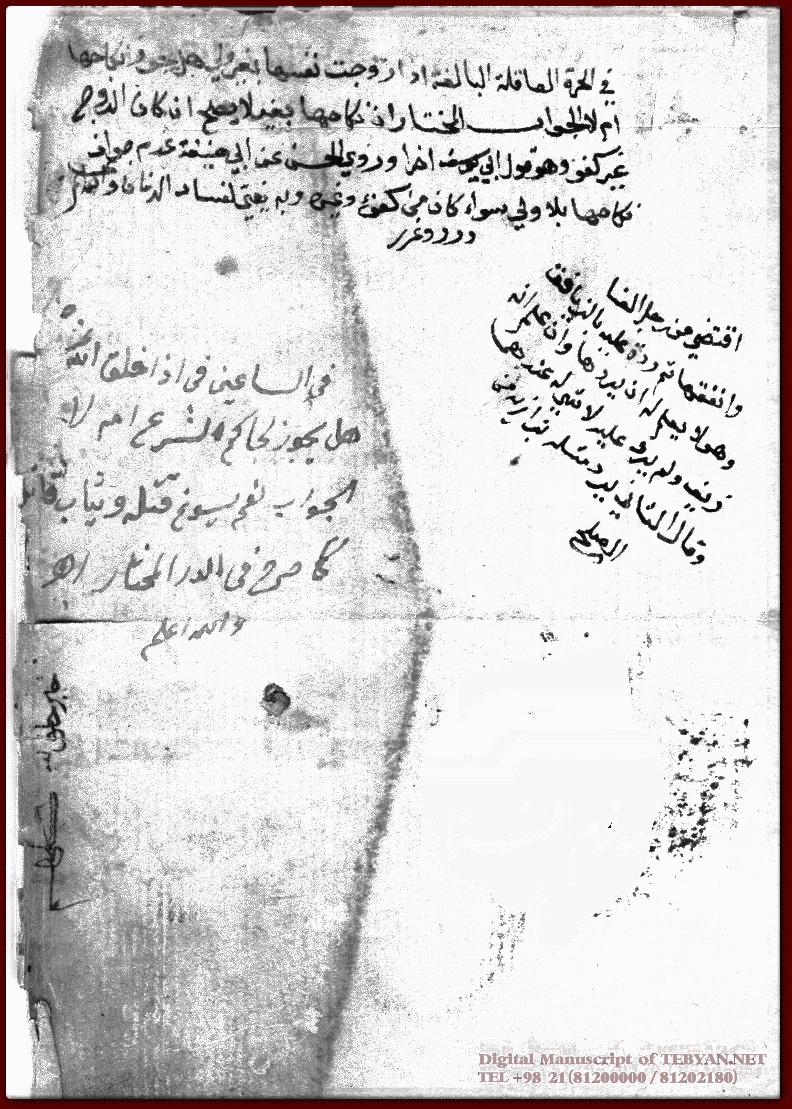 في الحرة العاقلة البالغة اذا زوجت نفسها بغير ولي هل يجوز نكاحها
ام لا الجواب المختار ان نكاحها بغير لا يصح ان كان الزوج
غير كفو وهو قول ابي يوسف اخرا وروي الحسن عن ابي حنيفة عدم جواز
نكاحها بلا ولي سواء كان من كفوء وغيره وبه يفتى لفساد الزمان
درر وغرر
اقتضى من رجل الفا
وانفقها ثم رده عليه بالزيافة
وهو لا يعلم له ان يردها وان علم انه
زيف ولم يرد عليه لا شيء له عندهما
وقال الثاني يرد مثله
الصلح
في الساعي في اذا خلق الله
هل يجوز لحاكم الشرع ام لا
الجواب نعم يسوغ قتله ويثاب قاتله
كما صرح في الدر المختار اهـ
والله اعلم
Digital Manuscript of TEBYAN.NET
TEL +98 21(81200000 / 81202180)